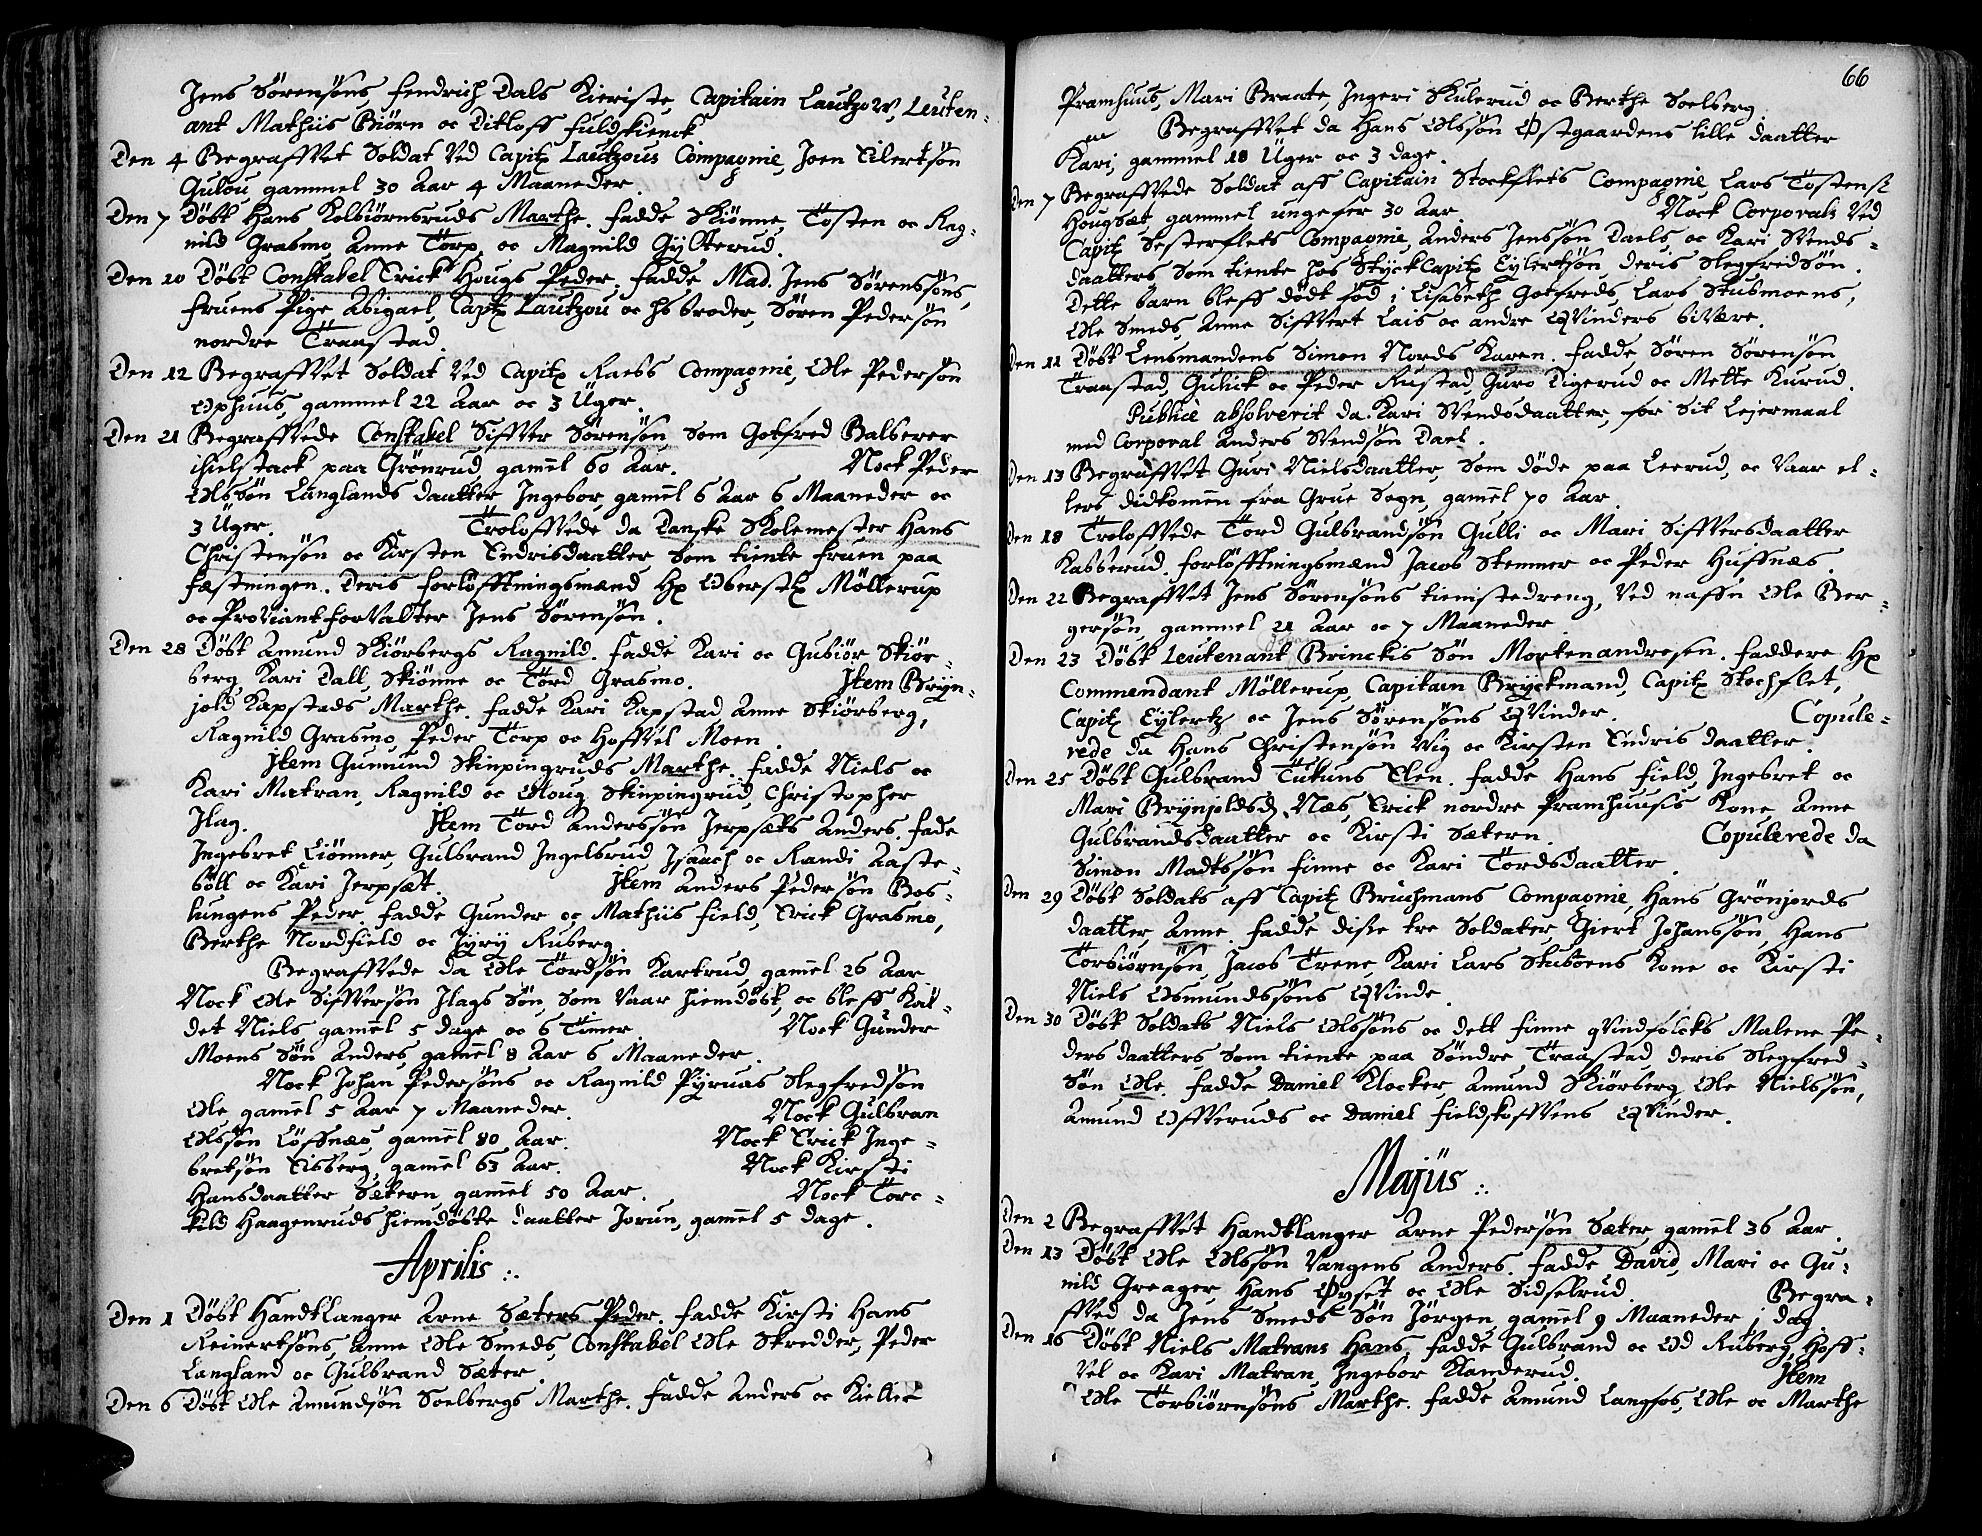 Jens Sörensöns, fendrich Dals Kieriste, Capitain Lautzow, Leuten-
ant Mathiis Biörn oc Ditloff fuldskienck
Den 4 Begraffvet Soldat Ved Capitx Lautzous Compagnie, Joen Eilertsön
Gulou gammel 30 Aar 4 Maaneder.
Den 7 Döbt Hans Kolbiörnsruds Marthe. fadde Skiönne, Tosten oc Rag-
nild Grasmo, Anne Torp, oc Magnild Gylterud.
Den 10 Döbt Constabel Erick Hougs Peder. fadde Mad. Jens Sörenssöns,
fruens Pige Abigael, Captx Lautzou oc hs broder, Sören Pedersön
nordre Traastad.
Den 12 Begraffvet Soldat Ved Capitx Raebs Compagnie, Ole Pedersön
Ophuus, gammel 22 Aar oc 3 Uger.
Den 21 Begraffvede Constabel Siffver Sörensön, som Gotfred Balberer
ihielstack paa Grönrud, gamel 60 Aar. Nock Peder
Olssön Langlands daatter Ingebor, gamel 6 Aar 6 Maaneder oc
3 Uger. Troloffvede da Danske Skolemester Hans
Christensön oc Kirsten Endrisdaatter som tiente fruen paa
fæstningen. Deris forlöfftningsmænd Hx Oberstx Möllerup
oc Proviantforvalter Jens Sörensön.
Den 28 Döbt Amund Skiörbergs Ragnild. fadde Kari oc Gubiör Skiör-
berg, Kari Dall, Skiönne oc Tord Grasmo. Item Bryn-
jold Kapstads Marthe. fadde Kari Kapstad, Anne Skiörberg,
Ragnild Grasmo, Peder Torp oc Hoffvel Moen.
Item Gumund Skinpingruds Marthe. fadde Niels oc
Kari Matran, Ragnild oc Oloug Skinpingrud, Christopher
Ilag. Item Tord Anderssön Jerpsets Anders. fade
Ingebret Liönner, Gulbrand Ingelsrud, Isaach oc Randi Aaste-
böll oc Kari Jerpset. Item Anders Pedersön Bos-
lungens Peder. fadde Gunder oc Mathiis field, Erick Grasmo,
Berthe Nordfield oc Jyry Ruberg.
Begraffvede da Ole Tordsön Kartrud, gamel 26 Aar
Nock Ole Siffversön Ilags Sön, som Vaar hiemdöbt, oc bleff kal-
det Niels gamel 5 dage oc 6 Timer. Nock Gunder
Moens Sön Anders, gamel 8 Aar 6 Maaneder.
Nock Johan Pedersöns oc Ragnild Pyruas Slegfredsön
Ole gamel 5 Aar 7 Maaneder. Nock Gulbran
Olssön Löffnæs gamel 80 Aar. Nock Erick Inge-
bretsön Eisberg, gamel 63 Aar. Nock Kirsti
Hansdaatter Sætern, gamel 50 Aar. Nock Torc-
kild Haagenruds hiemdöbte daatter Jorun, gamel 5 dage.
Aprilis :.
Den 1 Döbt Handtlanger Arne Sæters Peder. fadde Kirsti Hans
Reinertsöns, Anne Ole Smeds, Constabel Ole Skredder, Peder
Langland oc Gulbrand Sæter.
Den 6 Döbt Ole Amundsön Solbergs Marthe. fadde Anders oc Kielle
66
Pramhuus, Mari Braate, Ingeri Skulerud oc Berthe Soelberg.
Begraffvet da Hans Olssön Östgaardens lille daatter
Kari, gammel 18 Uger oc 3 dage.
Den 7 Begraffvede Soldat aff Capitain Stockflets Compagnie Lars Tostens
Hougsæt gammel ungefer 30 Aar. Nock Corporals Ved
Capitx Sesterflets Compagnie, Anders Jenssön Daels, oc Kari Svends-
daatters som tiente hos StyckCapitx Eylertsön, deris Slegfredsön.
Dette barn bleff dödt föd i Lisabeth Gotfreds, Lars Stubmoens,
Ole Smeds, Anne Siffvert Lais oc andre Qvinders bivære.
Den 11 Döbt Lensmandens Simon Nords Karen. fadde Sören Sörensön
Traastad, Gulick oc Peder Rustad, Guro Digerud oc Mette Kurud.
Publice absolverit da Kari Svendsdaatter, for sit Lejermaal
med Corporal Anders Svendsön Dael.
Den 13 Begraffvet Guri Nielsdaatter, som döde paa Leerud, oc Vaar el-
lers didkomen fra Grue Sogn, gamel 70 Aar.
Den 18 Troloffvede Tord Gulbrandsön Gulli oc Mari Siffversdaatter
Kabberud. forlöfftningsmænd Jacob Stemner oc Peder Huffnæs.
Den 22 Begraffvet Jens Sörensöns tienistedreng, Ved naffn Ole Ber-
gersön, gammel 21 Aar oc 7 Maaneder
Den 23 Döbt Leutenant Brinckis Sön Morten andresen. faddere Hx
Commendant Möllerup, Capitain Bryckmand, Capitx Stochflet,
Capitx Eylertz oc Jens Sörensöns Qvinder. Copule-
rede da Hans Christensön Vig oc Kirsten Endris daatter.
Den 25 Döbt Gulbrand Tutuns Elen. fadde Hans field, Ingebret oc
Mari Brynjoldsd Næs, Erick nordre Pramhuusis Kone, Anne
Gulbrandsdaatter oc Kirsti Sætern. Copulerede da
Simon Madtssön finne oc Kari Tordsdaatter.
Den 29 Döbt Soldats aff Capitx Bruchmans Compagnie, Hans Grönjords
daatter Anne. fadde disse tre Soldater, Giert Johanssön, Hans
Torbiörnsön, Jacob Trene, Kari Lars Stuboens Kone oc Kirsti
Niels Osmundssöns Qvinde.
Den 30 Döbt Soldats Niels Olssöns oc dett finne qvindfolcks Malene Pe-
ders daatters, som tiente paa Söndre Traastad, deris Slegfred-
sön Ole. fadde Daniel Klocker, Amund Skiörberg, Ole Nielssön,
Amund Offveruds oc Daniel fieldskoffvens Qvinder.
Majüs :.
Den 2 Begraffvet Handtlanger Arne Pedersön Sæter, gamel 36 Aar.
Den 13 Döbt Ole Olssön Vangens Anders. fadde David, Mari oc Gu-
nild Greager, Hans Öyset oc Ole Sidselrud. Begra-
ffved da Jens Smeds Sön Jörgen, gamel 9 Maaneder 1 dag.
Den 16 Döbt Niels Matrans Hans. fadde Gulbrand oc Od Ruberg, Hoff-
vel oc Kari Matran, Ingebor Kanderud. Item
Ole Torbiörnsöns Marthe. fadde Amund Langfos, Ole oc Marthe